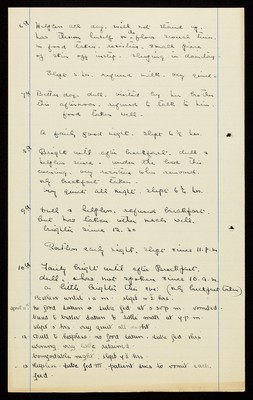 6th Helpless all day, will not stand up,
has thrown herself on the floor several times.
no food taken. resistive. small piece
of skin off
Slept 2 hrs. refused milk. very quiet.
7th Better day, dull. visited by her brother
this afternoon, refused to talk to him.
food taken well.
A fairly good night. Slept 6½ hrs.
8th Bright until after breakfast, dull &
helpless since. under the bed this
evening. very resistive when removed.
only breakfast taken.
very quiet all night. Slept 6½ hrs.
9th Dull & helpless, refused breakfast,
but has taken other meals well.
brighter since 12.30
Restless early night, slept since 11. P.M.
10th Fairly bright until after breakfast.
dull, & has not spoken since 10. a.m.
a little brighter this eve: (only breakfast taken)
Restless until 1 a.m. slept 4½ hrs.
11th No food taken. tube fed at 2.30 p.m. vomited.
Used to bread taken & little milk at 9 p.m.
slept 2 hrs very quiet all night
12 Dull & helpless no food taken. tube fed this
morning very little retained
comfortable night. slept 4½ hrs
13 Helpless. tube fed patient tries to vomit each
feed.